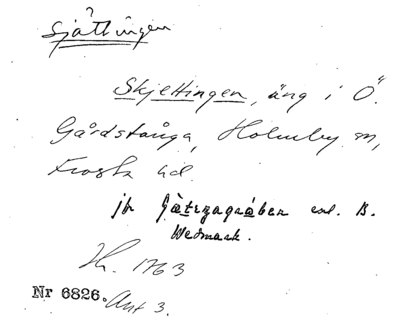 ?
Sjättingen
Skjettingen, äng i Ö.
Gårdstånga, Holmby sn,
Frosta hd.
jfr Gåtzagraben enl. B.
Wedmark.
Lh. 1763
Nr 6826. Ant 3.